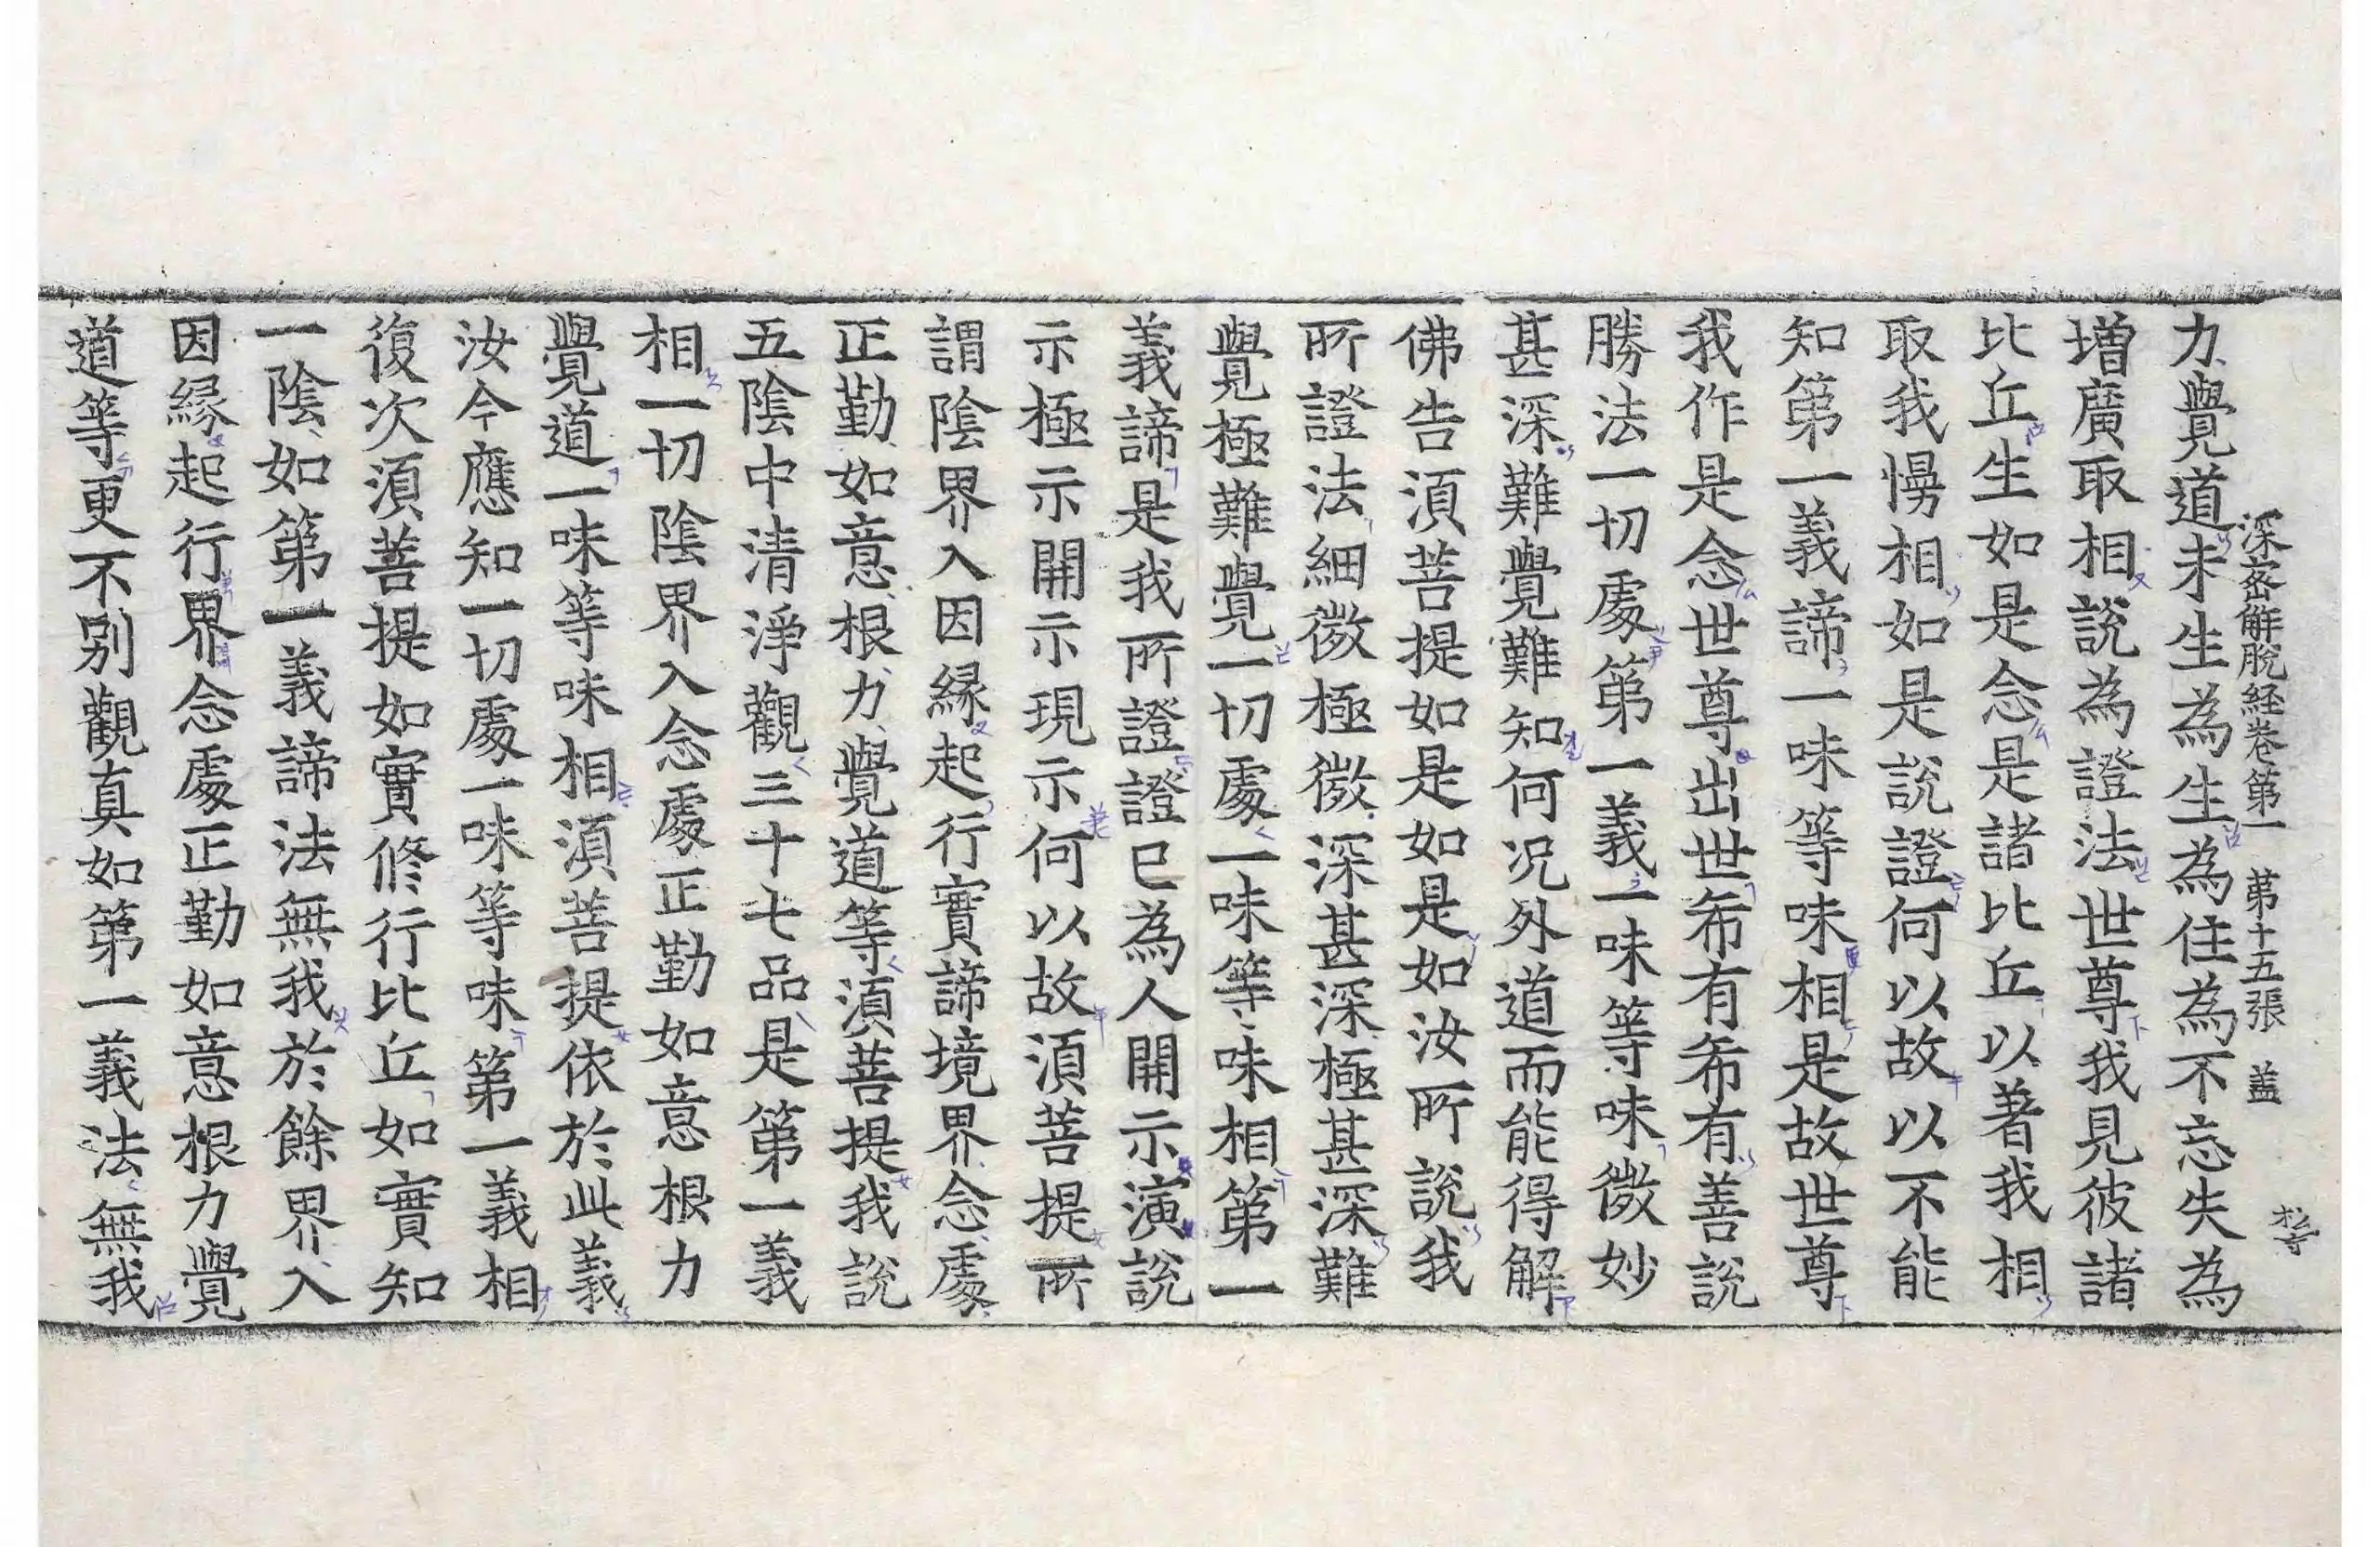 深密解脫經卷第一 第十五張 盖
力覺道未生為生為住為不忘失為
増廣取相說為證法世尊我見彼諸
比丘生如是念是諸比丘以著我相
取我慢相如是說證何以故以不能
知第一義諦一味等味相是故世尊
我作是念世尊出世希有希有善說
勝法一切處第一義一味等味微妙
甚深難覺難知何况外道而能得解
佛告湏菩提如是如是如汝所說我
所證法細微極微深甚深極甚深難
覺極難覺一切處一味等味相第一
義諦是我所證證已為人開示演說
示極示開示現示何以故湏菩提所
謂陰界入因縁起行實諦境界念處
正勤如意根力覺道等湏菩提我說
五陰中清淨觀三十七品是第一義
相一切陰界入念處正勤如意根力
覺道一味等味相湏菩提依於此義
汝今應知一切處一味等味第一義相
復次湏菩提如實修行比丘如實知
一陰如第一義諦法無我於餘界入
因縁起行界念處正勤如意根力覺
道等更不别觀真如第一義法無我